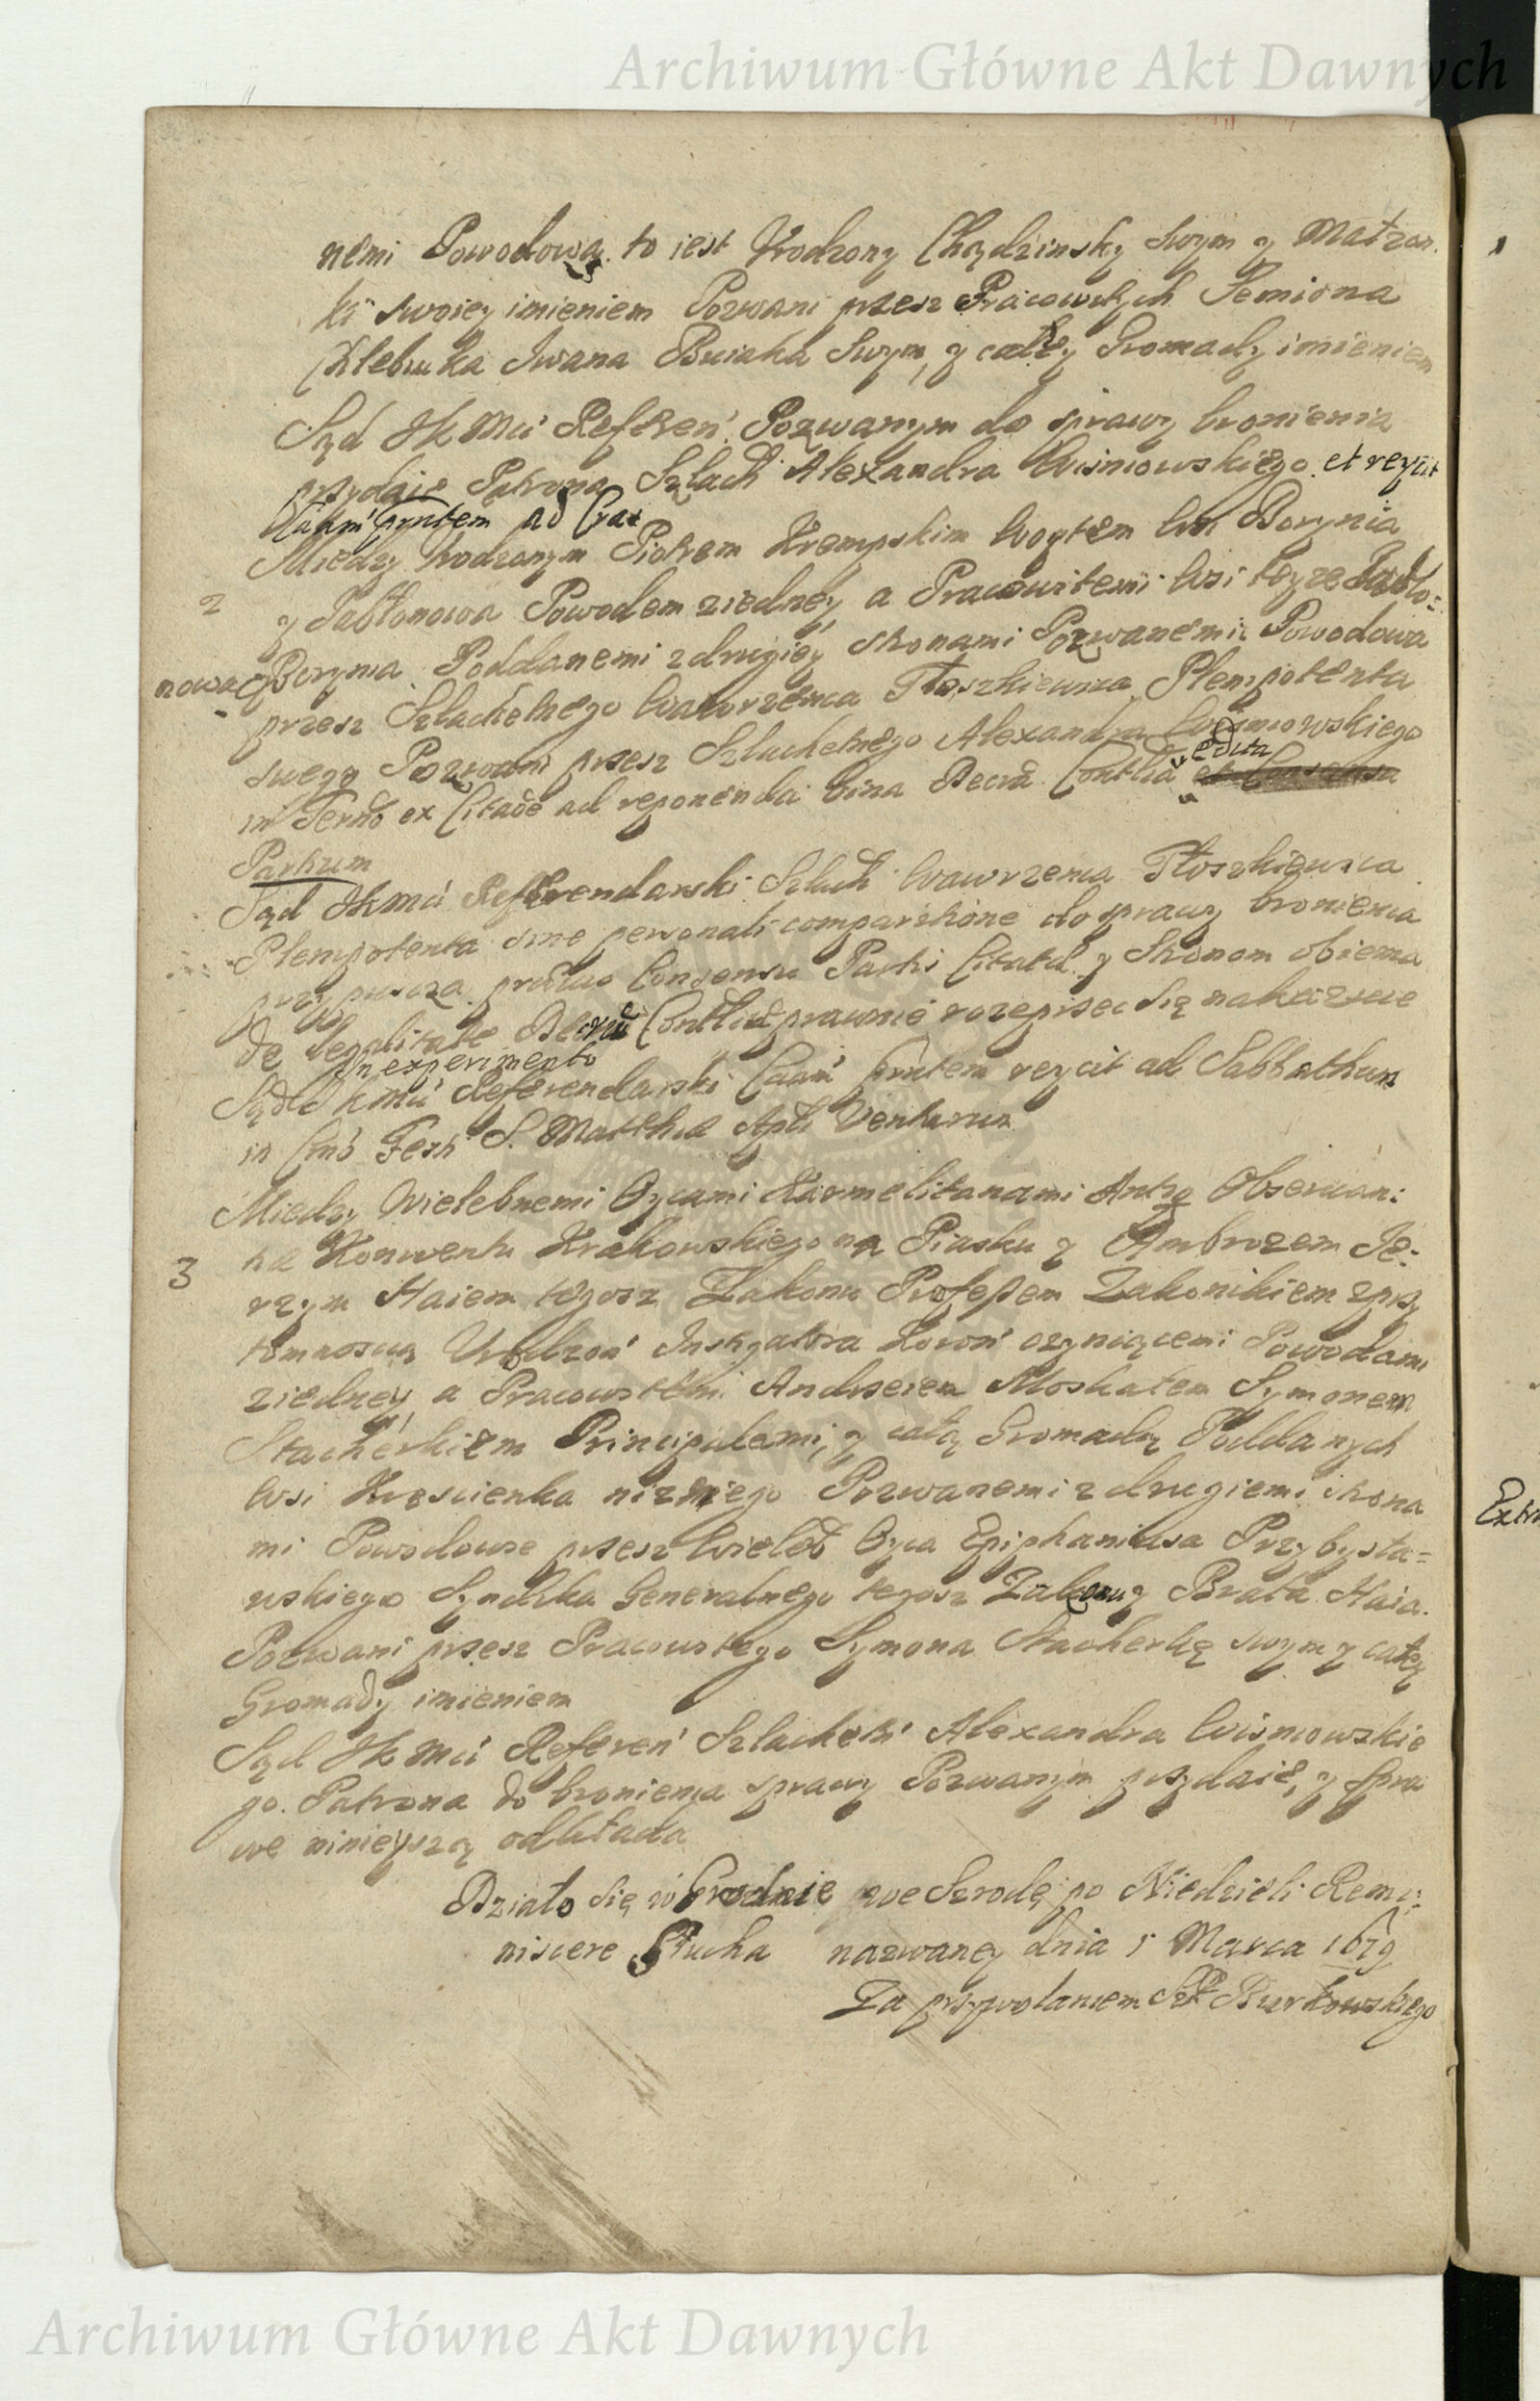 Archiwum Główne Akt Dawnych
nemi Powodowa to iest Vrodzony Chądzinsky Swym y Małzon.
ki swoiey imieniem Pozwani przez Pracowitych Semiona
Chlebuka Iwana Buiaka Swym, y całey Gromady imieniem
Sąd JKMci Referen. Pozwanym do sprawy bronienia
przydaie Patrona Szlach Alexandra Wismowskiego et reycit
Caam pntem ad Cras
Między Vrodzonym Piotrem Krempskim Woytem Wsi Borynia
2 y Jabłonowa Powodem ziedney, a Pracowitemi Wsi teyze Jabło=
nowa y Borynia Poddanemi z drugiey stronami Pozwanemi Powodowa
przesz Szlachetnego Wawrzenca Tłoszkiewica Plenipotenta
swego Pozwani przesz Szlachetnego Alexandra Wismowskiego
in Termo ex Citaoe ad reponenda bina Decra Contlia edita
et Consensu
Partium
Sąd JKMci Referendarski Szlach Wawrzenca Tłoszkiewica
Plenipotenta sine personali comparitione do sprawy bronienia
przypuscza, Consensu Partis Citatae y Stronom obiema
de legalitate Decru Contliu prawnie rozeprzec się nakazuie
In experimento
Sąd JKMci Referendarski Caam pntem reycit ad Sabbathum
in Cro Festi S. Matthiae Apli Venturum
Między Wielebnemi Oycami Karmelitanami Antiq Observan:
3 tiae Konwentu Krakowskiego na Piasku y Ambrozem Je:
rzym Haiem tegosz Zakonu Professem Zakonikiem zprzy
tomnoscią Vrodzon Instygatora Koron czyniącemi Powodami
ziedney a Pracowitemi Andrzeiem Moskałem Symonem
Stacherkiem Principalemi, y całą Gromadą Poddanych
Wsi Kroscienka niznego Pozwanemi z drugiemi strona
mi Powodowe przesz Wieleb Oyca Epiphaniusa Przybysła=
wskiego Syndika Generalnego tegosz Zakonu y Brata Haia.
Pozwani przesz Pracowitego Symona Stacherkę swym y całey
Gromady imieniem
Sąd JKMci Referen Szlachetn Alexandra Wismowskie
go. Patrona do bronienia sprawy Pozwanym przydaie, y Spra
we ninieyszą odkłada
Działo się w Grodnie we Szrodę po Niedzieli Remi:
niscere Sucha nazwaney dnia 1 Marca 1679
Za przywołaniem Burkowskiego
Extr
Archiwum Główne Akt Dawnych